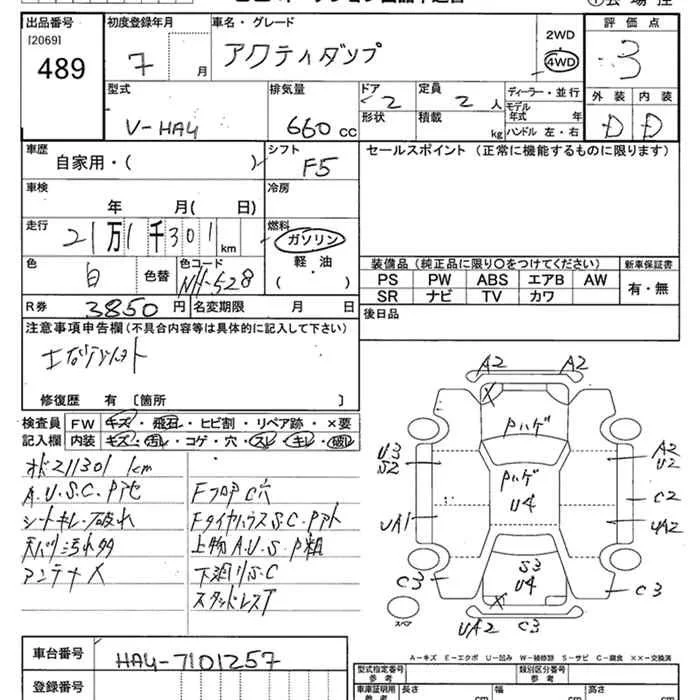 出品番号 初度登録年月 車名・グレード 2WD 評価点
[2069]
489 7 月 アクティダンプ 4WD 3
型式 排気量 ドア 定員 ディーラー・並行 外装 内装
2 2人 モデル年式 年
V-HA4 660cc 形状 積載 kg ハンドル 左・右 D D
車歴 シフト セールスポイント(正常に機能するものに限ります)
自家用・( ) F5
車検 冷房
年 月( 日)
走行 燃料
21万1千301km ガソリン
色 色替 色コード 軽油 装備品(純正品に限り○をつけてください) 新車保証書
白 NH-528 ( ・ ) PS PW ABS エアB AW 有・無
SR ナビ TV カワ
R券 3850円 名変期限 月 日 後日品
注意事項申告欄(不具合内容等は具体的に記入して下さい)
修復歴 有〔箇所 〕
検査員 FW キズ・飛石・ヒビ割・リペア跡・×要
記入欄 内装 キズ・汚レ・コゲ・穴・スレ・キレ・破レ
211301 km
A.U.S.C.Pアセ FフロアC穴
シートキレ・破れ FタイヤハウスS.C.Pアト
天バリ汚れ多 上物A.U.S.P粗
アンテナ× 下廻りS.C
スタッドレスT
A2 A2
Pハゲ
U3 S2 A2 U2
Pハゲ
U4 C2
UA1 UA2
S3
U4
C3 C3
スペア UA2 C3
A-キズ E-エクボ U-凹み W-補修跡 S-サビ C-腐食 ××-交換済
車台番号 HA4-7101257
登録番号
型式指定番号 参考 類別区分番号 参考
車庫証明用 参考 長さ cm 幅 cm 高さ cm